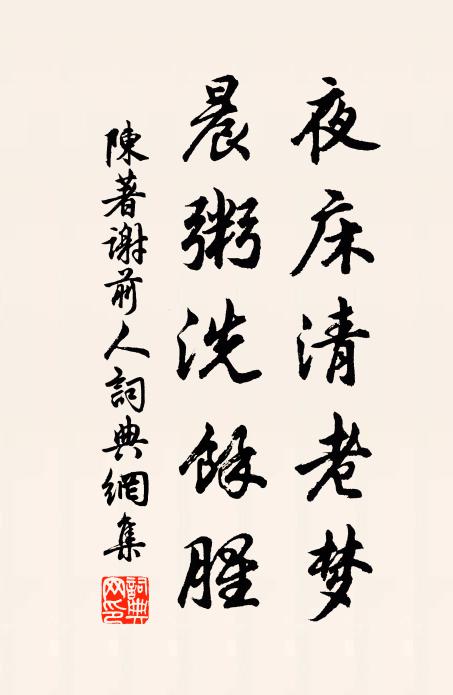 夜床清老梦
晨粥洗餘腥
陳著謝前人詞典網集
詞典网印